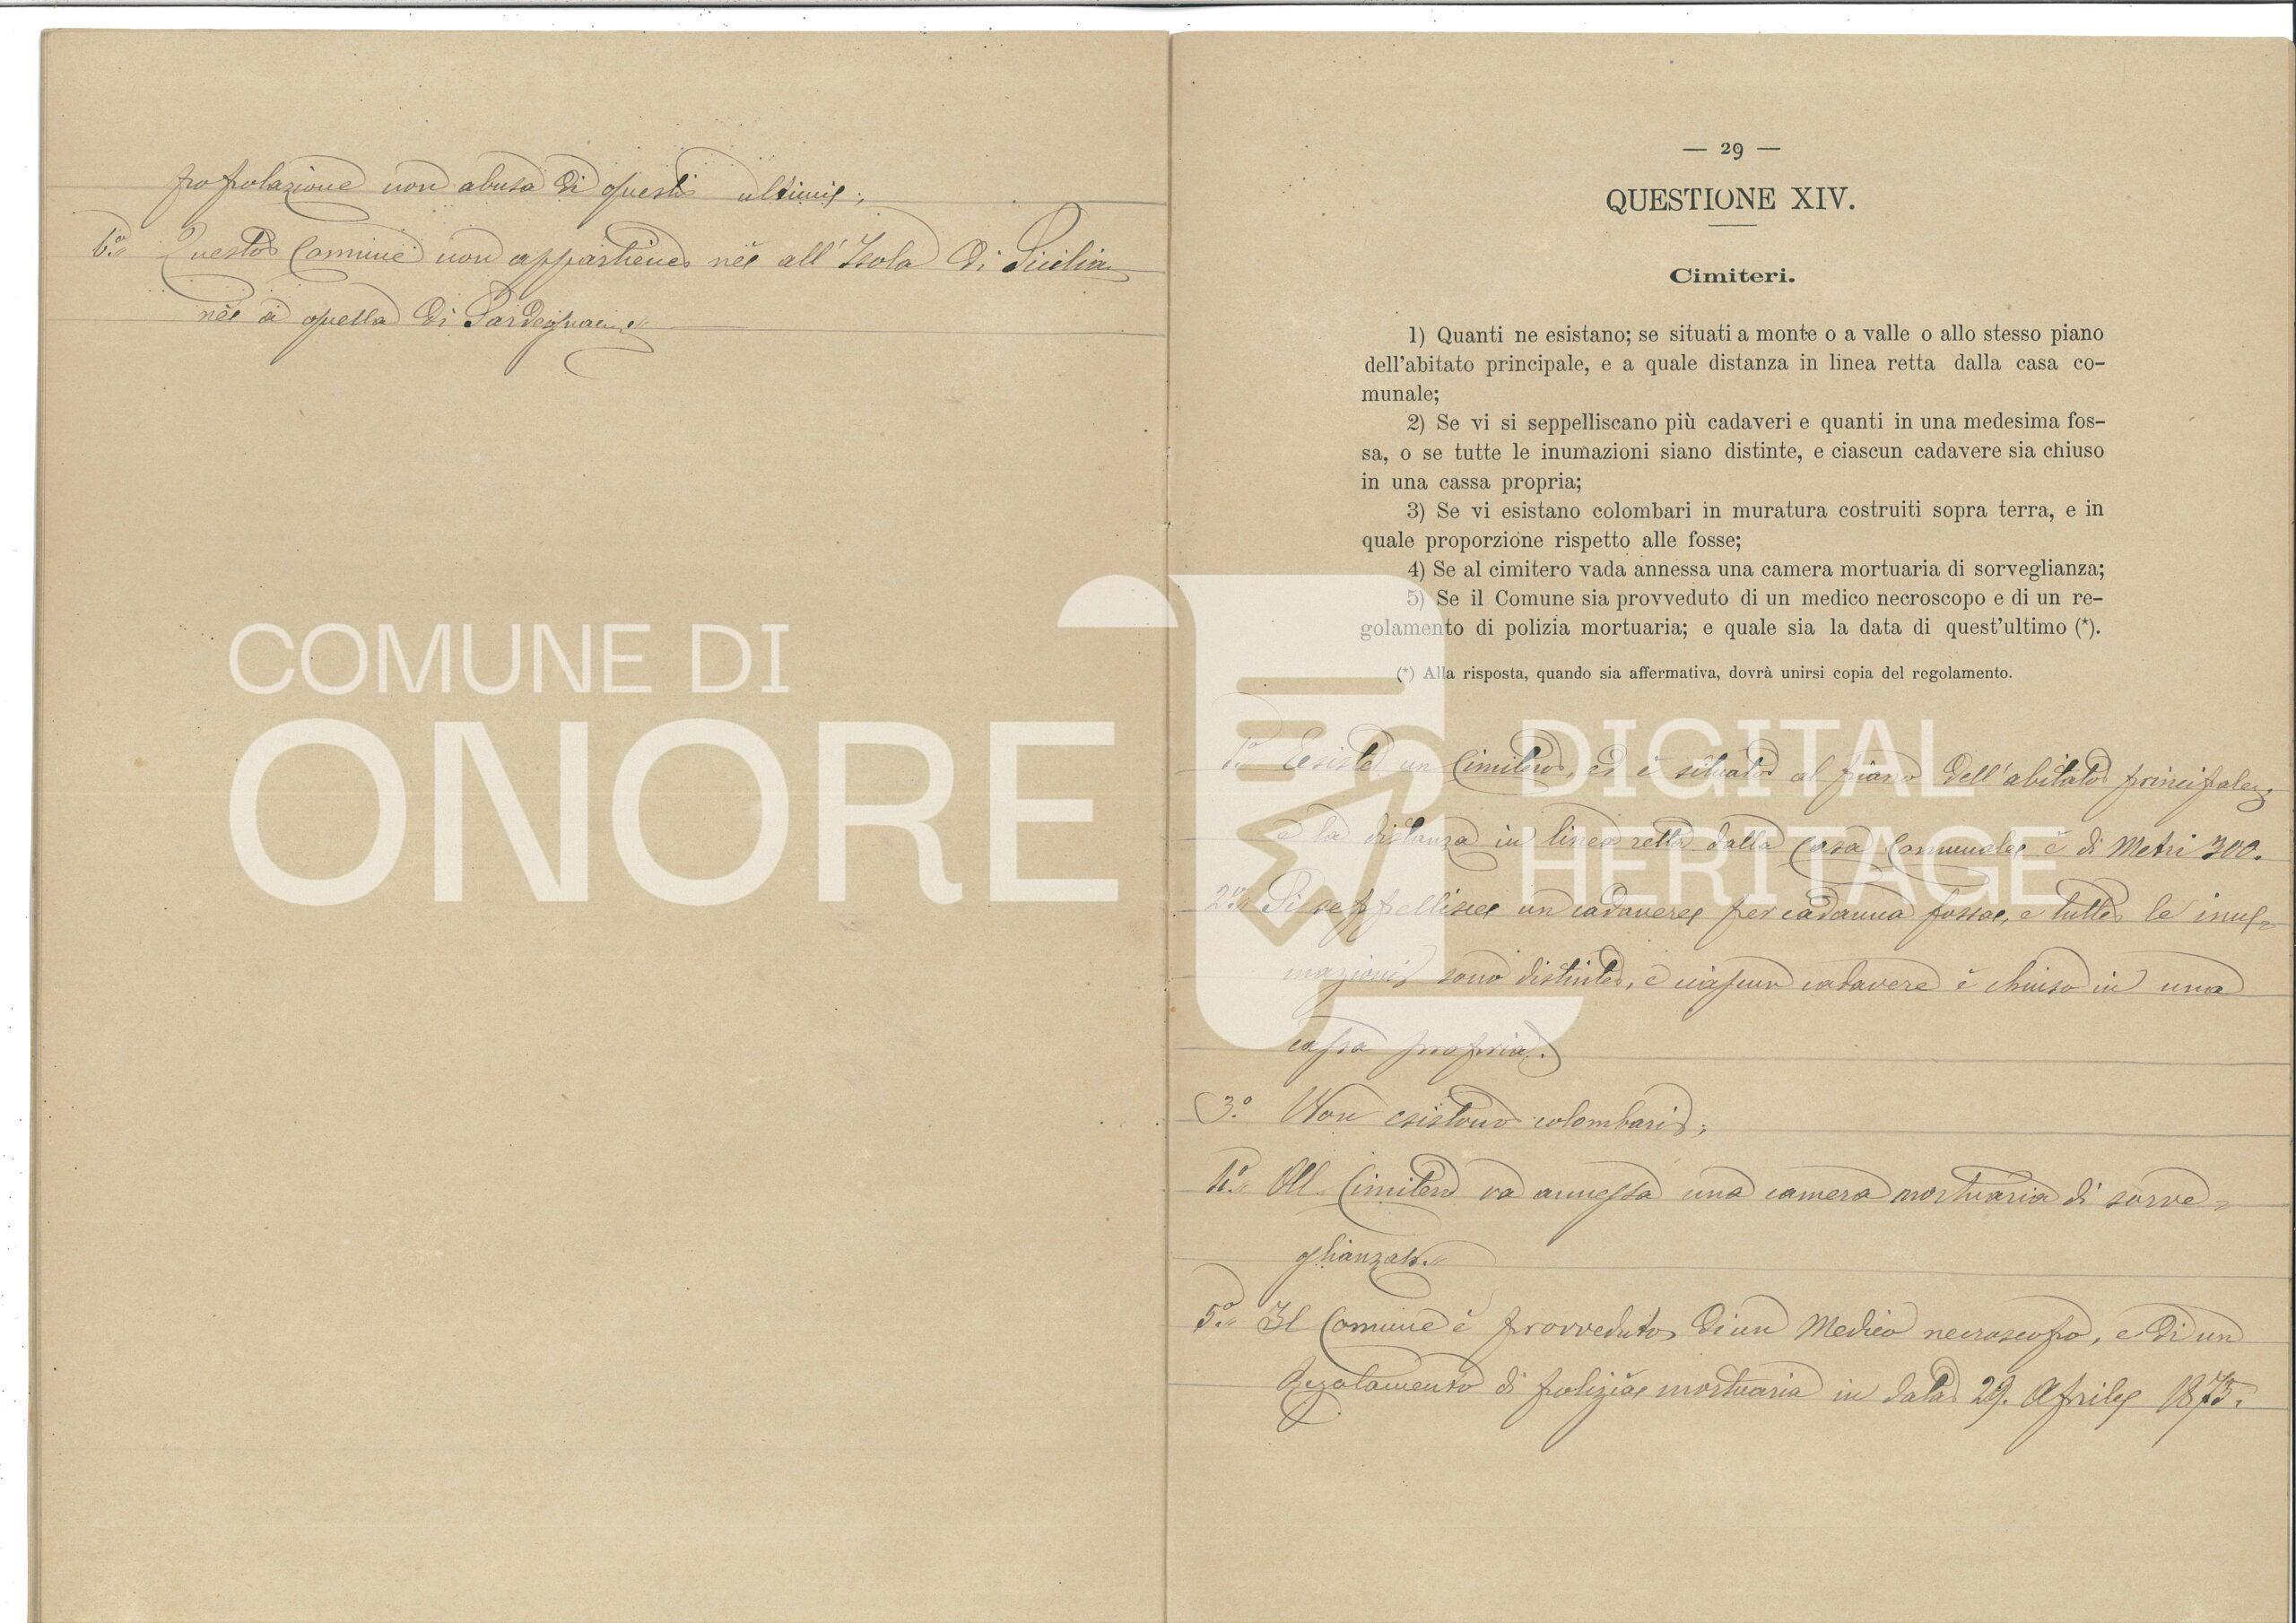 popolazione non abusa di questi ultimi;
6.° Questo Comune non appartiene nè all'Isola di Sicilia
nè a quella di Sardegna.
— 29 —
QUESTIONE XIV.
Cimiteri.
1) Quanti ne esistano; se situati a monte o a valle o allo stesso piano
dell'abitato principale, e a quale distanza in linea retta dalla casa co-
munale;
2) Se vi si seppelliscano più cadaveri e quanti in una medesima fos-
sa, o se tutte le inumazioni siano distinte, e ciascun cadavere sia chiuso
in una cassa propria;
3) Se vi esistano colombari in muratura costruiti sopra terra, e in
quale proporzione rispetto alle fosse;
4) Se al cimitero vada annessa una camera mortuaria di sorveglianza;
5) Se il Comune sia provveduto di un medico necroscopo e di un re-
golamento di polizia mortuaria; e quale sia la data di quest'ultimo (*).
(*) Alla risposta, quando sia affermativa, dovrà unirsi copia del regolamento.
1.° Esiste un Cimitero, ed è situato al piano dell'abitato principale,
e la distanza in linea retta dalla Casa Comunale è di Metri 300.
2.° Si seppellisce un cadavere per cadauna fossa, e tutte le inu-
mazioni sono distinte, e ciascun cadavere è chiuso in una
cassa propria.
3.° Non esistono colombari;
4.° Al Cimitero va annessa una camera mortuaria di sorve=
glianza.
5.° Il Comune è provveduto di un Medico necroscopo, e di un
Regolamento di polizia mortuaria in data 29. Aprile 1875.
COMUNE DI
ONORE
DIGITAL
HERITAGE